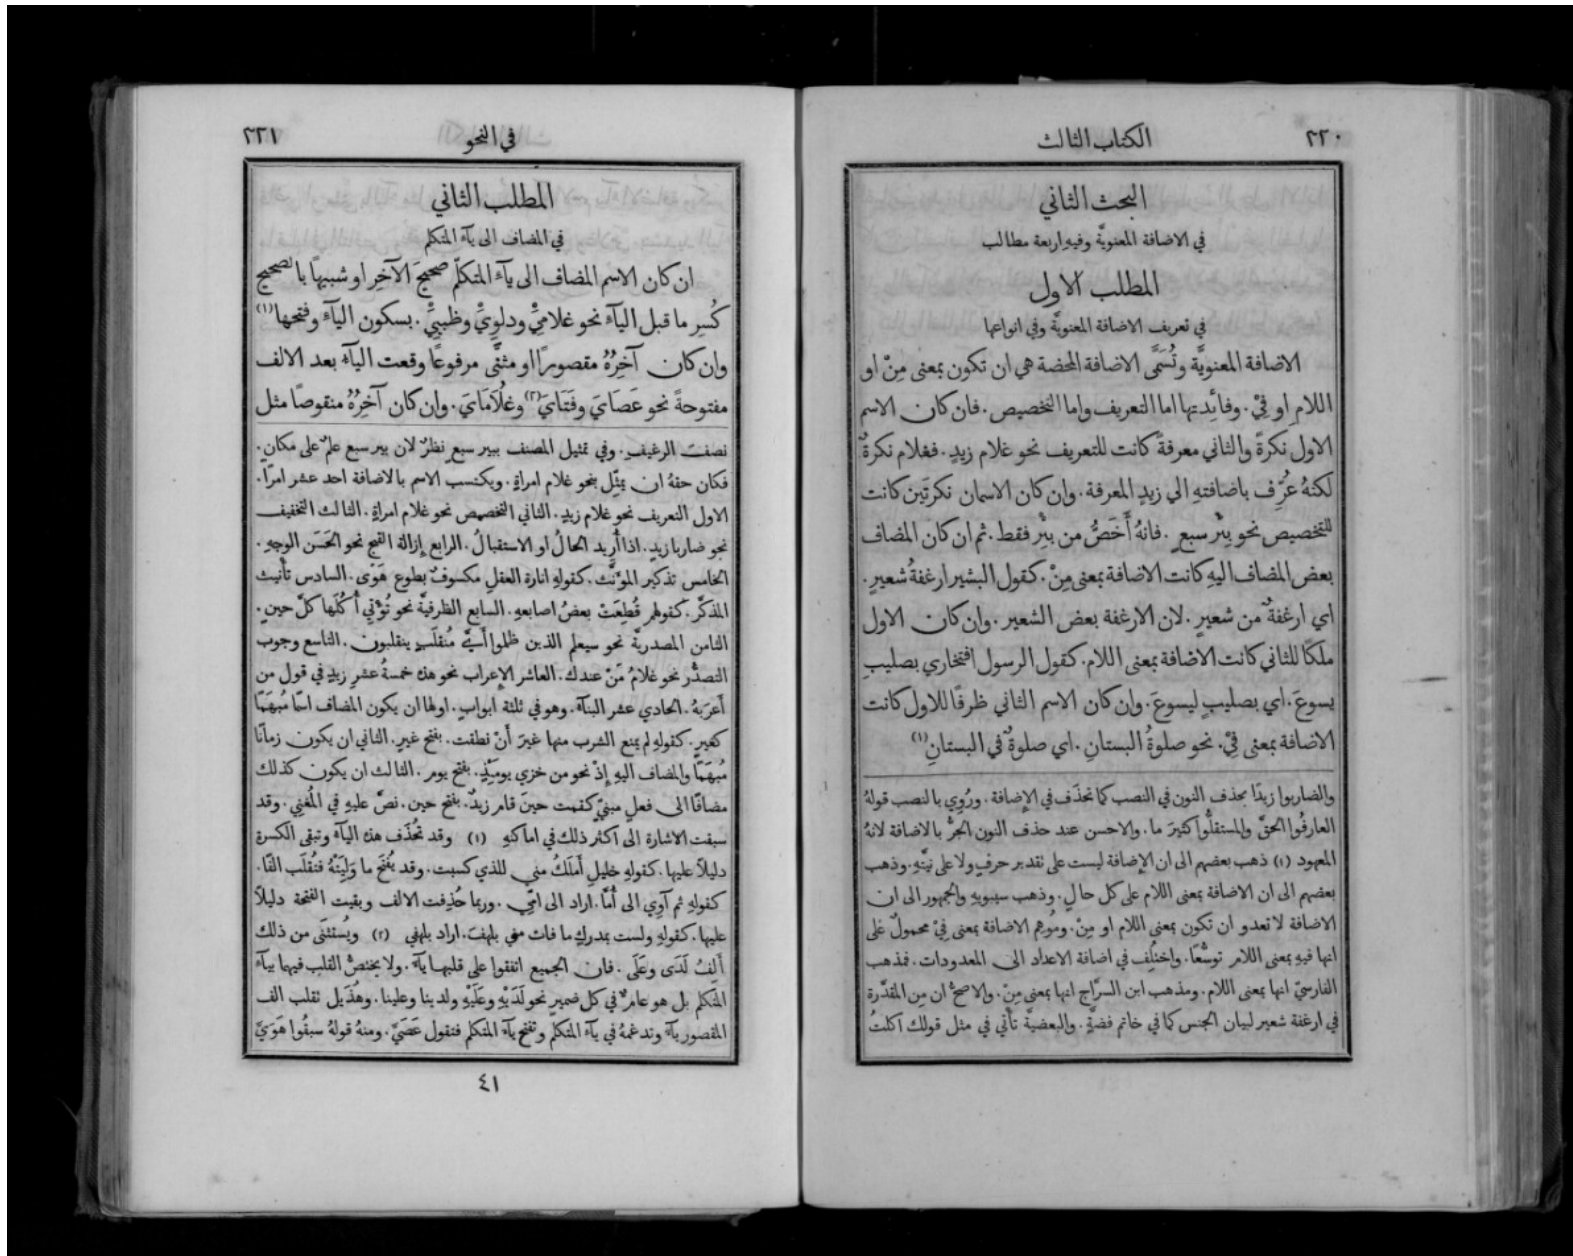 ٣٢٠
الكتاب الثالث
البحث الثاني
في الاضافة المعنويَّة وفيهِ اربعة مطالب
المطلب الاول
في تعريف الاضافة المعنويَّة وفي انواعها
الاضافة المعنويَّة وتُسَمَّى الاضافة المحضة هي ان تكون بمعنى مِنْ او
اللامِ او فِيْ. وفائِدتها اما التعريف واما التخصيص. فان كان الاسم
الاول نكرةً والثاني معرفةً كانت للتعريف نحو غلام زيدٍ. فغلام نكرةٌ
لكنهُ عُرِّف باضافتهِ الي زيدٍ المعرفة. وان كان الاسمان نكرتَين كانت
للتخصيص نحو بِئْر سبعٍ. فانهُ أَخَصُّ من بِئْرٍ فقط. ثم ان كان المضاف
بعض المضاف اليهِ كانت الاضافة بمعنى مِنْ. كقول البشير ارغفةُ شعيرٍ.
اي ارغفةٌ من شعيرٍ. لان الارغفة بعض الشعير. وان كان الاول
ملكًا للثاني كانت الاضافة بمعنى اللام. كقول الرسول افتخاري بصليبِ
يسوعَ. اي بصليبٍ ليسوعَ. وان كان الاسم الثاني ظرفًا للاول كانت
الاضافة بمعنى فِيْ. نحو صلوةُ البستانِ. اي صلوةٌ في البستانِ (١)
والضاربوا زيدًا بحذف النون في النصب كما تحذَف في الإضافة. ورُوِي بالنصب قولهُ
العارفُوا الحقَّ والمستقلُّوا كثيرَ ما. والاحسن عند حذف النون الجرُّ بالاضافة لانهُ
المعهود (١) ذهب بعضهم الى ان الإضافة ليست على تقدير حرفٍ ولا على نيَّتهِ. وذهب
بعضهم الى ان الاضافة بمعنى اللام على كل حالٍ. وذهب سيبويهِ والجمهور الى ان
الاضافة لا تعدو ان تكون بمعنى اللام او مِنْ. ومُوهِم الاضافة بمعنى فِيْ محمولٌ على
انها فيهِ بمعنى اللام توسُّعًا. واختُلِف في اضافة الاعداد الى المعدودات. فمذهب
الفارسيّ انها بمعنى اللام. ومذهب ابن السرَّاج انها بمعنى مِنْ. والاصحُّ ان مِن المقدَّرة
في ارغفة شعير لبيان الجنس كما في خاتم فضةٍ. والبعضيَّة تأتي في مثل قولك اكلتُ
في النحو
٣٢١
المطلب الثاني
في المضاف الى يآء المتكلم
ان كان الاسم المضاف الى يآء المتكلّم صحيحَ الآخِر او شبيهًا بالصحيح
كُسِر ما قبل اليآء نحو غلاميْ ودلوِيْ وظبيِيْ. بسكون اليآء وفتحها (١)
وان كان آخِرُهُ مقصورًا او مثنًّى مرفوعًا وقعت اليآء بعد الالف
مفتوحةً نحو عَصَايَ وفَتَايَ (٢) وغُلَامَايَ. وان كان آخِرُهُ منقوصًا مثل
نصفَ الرغيفِ. وفي تمثيل المصنف ببير سبعٍ نظرٌ لان بير سبع علمٌ على مكانٍ.
فكان حقهُ ان يمثِّل بنحو غلام امراةٍ. ويكتسب الاسم بالاضافة احد عشر امرًا.
الاول التعريف نحو غلام زيدٍ. الثاني التخصيص نحو غلام امراةٍ. الثالث التخفيف
نحو ضاربا زيدٍ. اذا أُريد الحالُ او الاستقبالُ. الرابع إزالة القبح نحو الحَسَن الوجهِ.
الخامس تذكير المؤنَّث. كقولهِ انارة العقلِ مكسوفٌ بطوع هَوًى. السادس تأنيث
المذكَّر. كقولهم قُطِعَتْ بعضُ اصابعهِ. السابع الظرفيَّة نحو تُؤْتي أُكُلَها كلَّ حينٍ.
الثامن المصدريَّة نحو سيعلم الذين ظلموا أَيَّ مُنقلَبٍ ينقلبون. التاسع وجوب
التصدُّر نحو غلامُ مَنْ عندك. العاشر الإعراب نحو هذه خمسةُ عشرِ زيدٍ في قول من
أعرَبهُ. الحادي عشر البنآء. وهو في ثلثة ابوابٍ. اولها ان يكون المضاف اسمًا مُبهَمًا
كغير. كقولهِ لم يمنع الشرب منها غيرَ أَنْ نطقت. بفتح غير. الثاني ان يكون زمانًا
مُبهَمًا والمضاف اليهِ إِذْ نحو من خزي يومَئِذٍ. بفتح يوم. الثالث ان يكون كذلك
مضافًا الى فعلٍ مبنيٍّ كقمت حينَ قام زيدٌ. بفتح حين. نصَّ عليهِ في المُغنِي. وقد
سبقت الاشارة الى اكثر ذلك في اماكنهِ (١) وقد تُحذَف هذه اليآء وتبقى الكسرة
دليلًا عليها. كقولهِ خليلِ أَملَكُ مني للذي كسبت. وقد يُفتَح ما وَلِيَتْهُ فتُقلَب الفًا.
كقولهِ ثم آوِي الى أُمَّا. اراد الى امِّي. وربما حُذِفت الالف وبقيت الفتحة دليلًا
عليها. كقولهِ ولست بمدركٍ ما فات مني بلهفَ. اراد بلهفي (٢) ويُستثنَى من ذلك
أَلِفُ لَدَى وعَلَى. فان الجميع اتفقوا على قلبها يآءً. ولا يختصُّ القلب فيهما بيآء
المتكلم بل هو عامٌ في كل ضميرٍ نحو لَدَيْهِ وعَلَيْهِ ولدينا وعلينا. وهُذَيل تقلب الف
المقصور يآءً وتدغمهُ في يآء المتكلم وتفتح يآء المتكلم فتقول عَصَيَّ. ومنهُ قولهُ سبقُوا هَوَيَّ
٤١